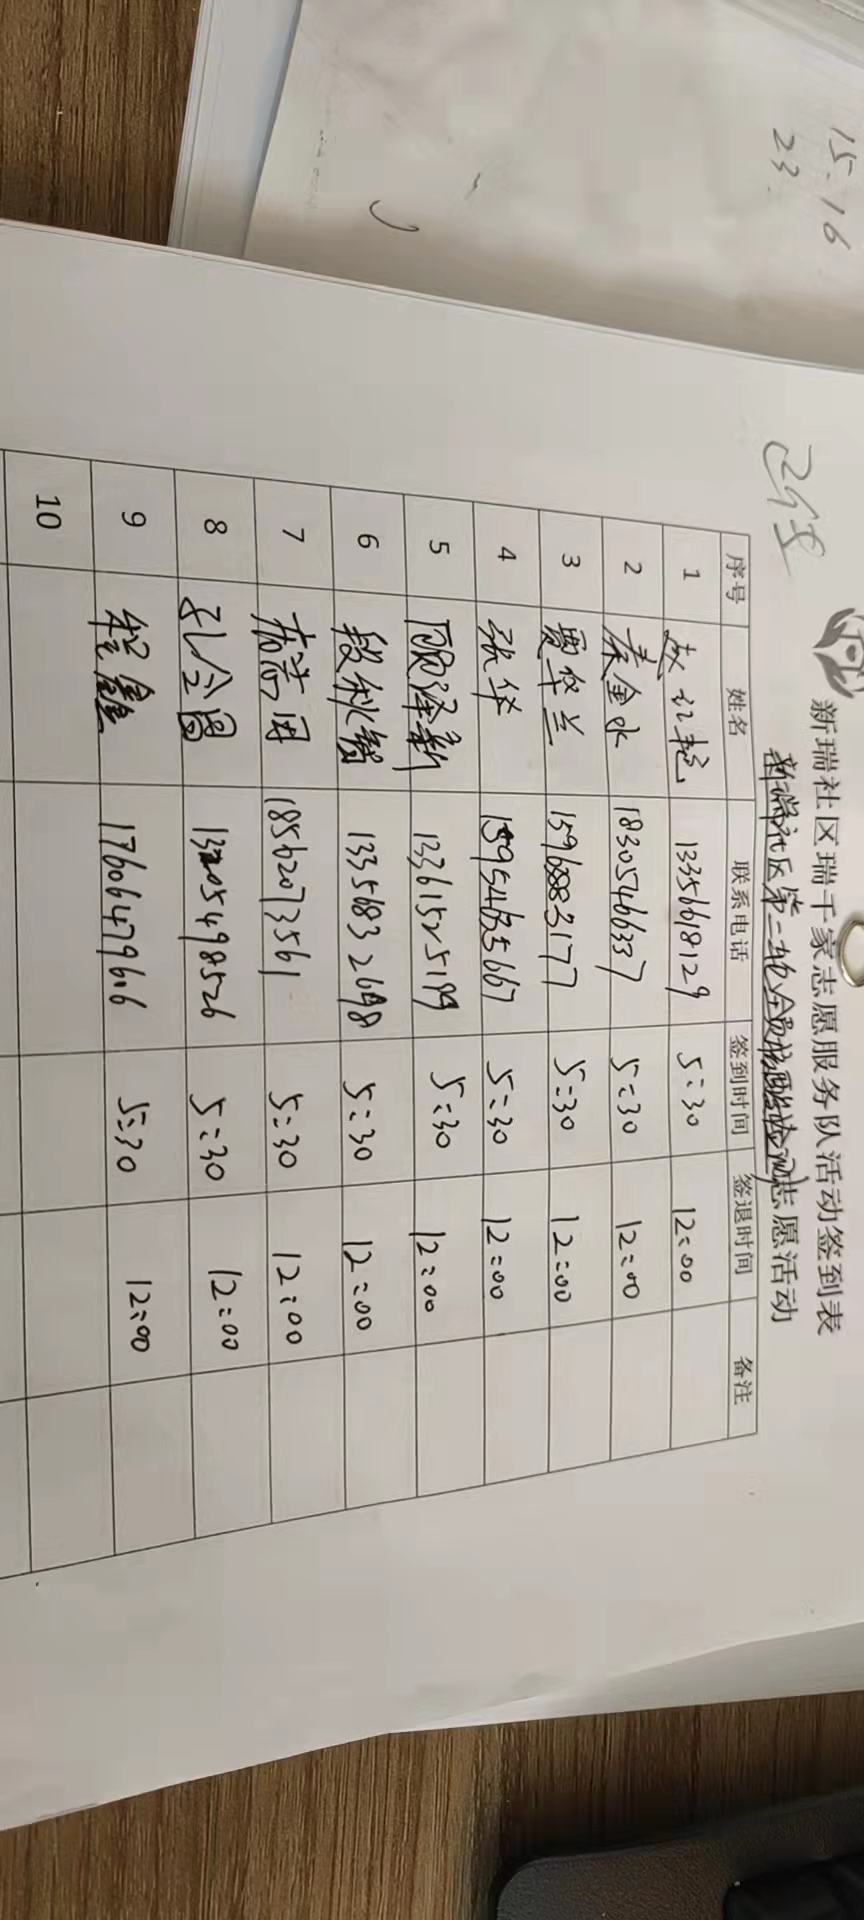 15.16
23
新瑞社区瑞千家志愿服务队活动签到表
新瑞社区第二轮全员核酸检测志愿活动
序号 姓名 联系电话 签到时间 签退时间 备注
1 13356618129 5:30 12:00
2 秦金水 18305466337 5:30 12:00
3 贾华兰 15968883177 5:30 12:00
4 张华 15954635667 5:30 12:00
5 顾泽新 13361525199 5:30 12:00
6 段秋智 13356832698 5:30 12:00
7 18562073561 5:30 12:00
8 孔令国 13205498526 5:30 12:00
9 程鑫 17606479606 5:30 12:00
10